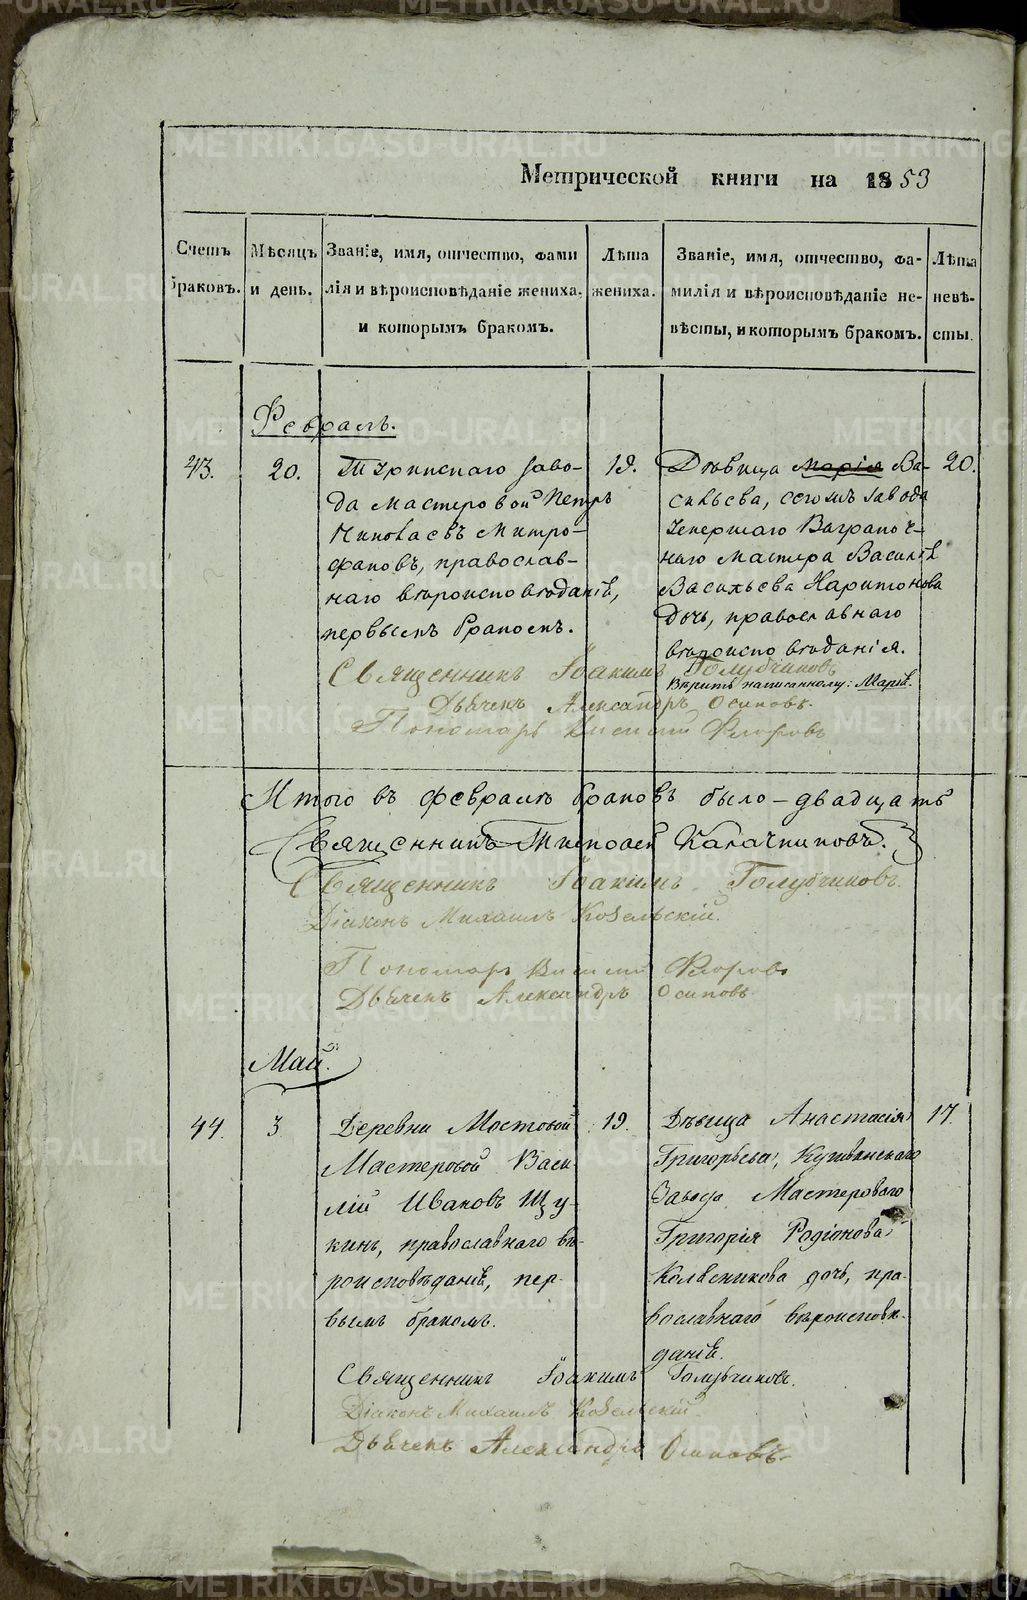 Метрической книги на 1853
Счетъ браковъ.
Мѣсяцъ и день.
Званіе, имя, отчество, фами
лія и вѣроисповѣданіе жениха,
и которымъ бракомъ.
Лѣта
жениха.
Званіе, имя, отчество, фа-
милія и вѣроисповѣданіе не-
вѣсты, и которымъ бракомъ.
Лѣта
невѣ-
сты.
Февраль.
43.
20.
Туринскаго заво-
да мастеровой Петръ
Николаевъ Митро-
фановъ, православ-
наго вѣроисповѣданія,
первымъ бракомъ.
19.
Дѣвица Марія Ва-
сильева, сегожъ завода
умершаго Ваграноч-
наго мастера Василія
Васильева Харитонова
дочь, православнаго
вѣроисповѣданія.
20.
Священникъ Іоакимъ Голубчиковъ
Вѣрить написанному: Марія.
Дьячекъ Александръ Осиповъ.
Пономарь Флоровъ
Итого въ февралѣ браковъ было – двадцать
Священникъ Тимофей Калачниковъ.
Священникъ Іоакимъ Голубчиковъ.
Діаконъ Михаилъ Козельскій.
Пономарь Флоровъ
Дьячекъ Александръ Осиповъ
Май.
44.
3.
Деревни Мостовой
Мастеровой Васи-
лій Ивановъ Щу-
кинъ, православнаго вѣ-
роисповѣданія, пер-
вымъ бракомъ.
19.
Дѣвица Анастасія
Григорьева, Кушвинскаго
Завода Мастероваго
Григорія Родіонова
Колесникова дочь, пра-
вославнаго вѣроисповѣ-
данія.
17.
Священникъ Іоакимъ Голубчиковъ.
Діаконъ Михаилъ Козельскій
Дьячекъ Александръ Осиповъ
METRIKI.GASO-URAL.RU